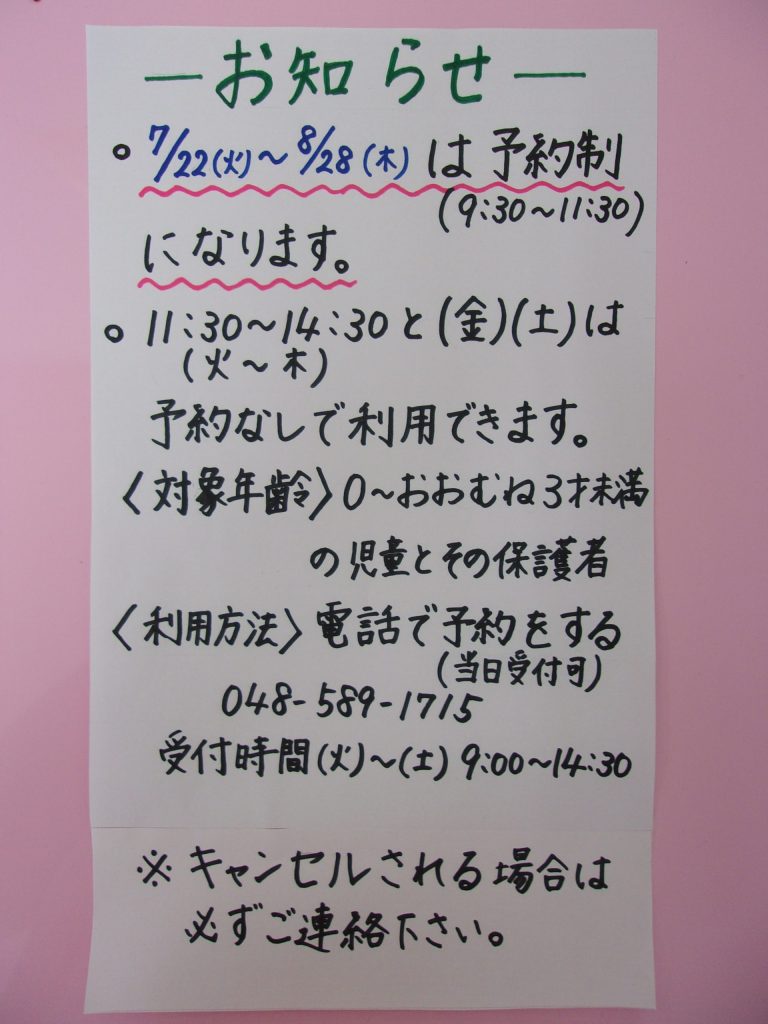 ―お知らせ―
○ 7/22(火)～8/28(木)は予約制
(9:30～11:30)
になります。
○ 11:30～14:30と(金)(土)は
(火～木)
予約なしで利用できます。
〈対象年齢〉0～おおむね3才未満
の児童とその保護者
〈利用方法〉電話で予約をする
(当日受付可)
048-589-1715
受付時間(火)～(土) 9:00～14:30
※キャンセルされる場合は
必ずご連絡下さい。